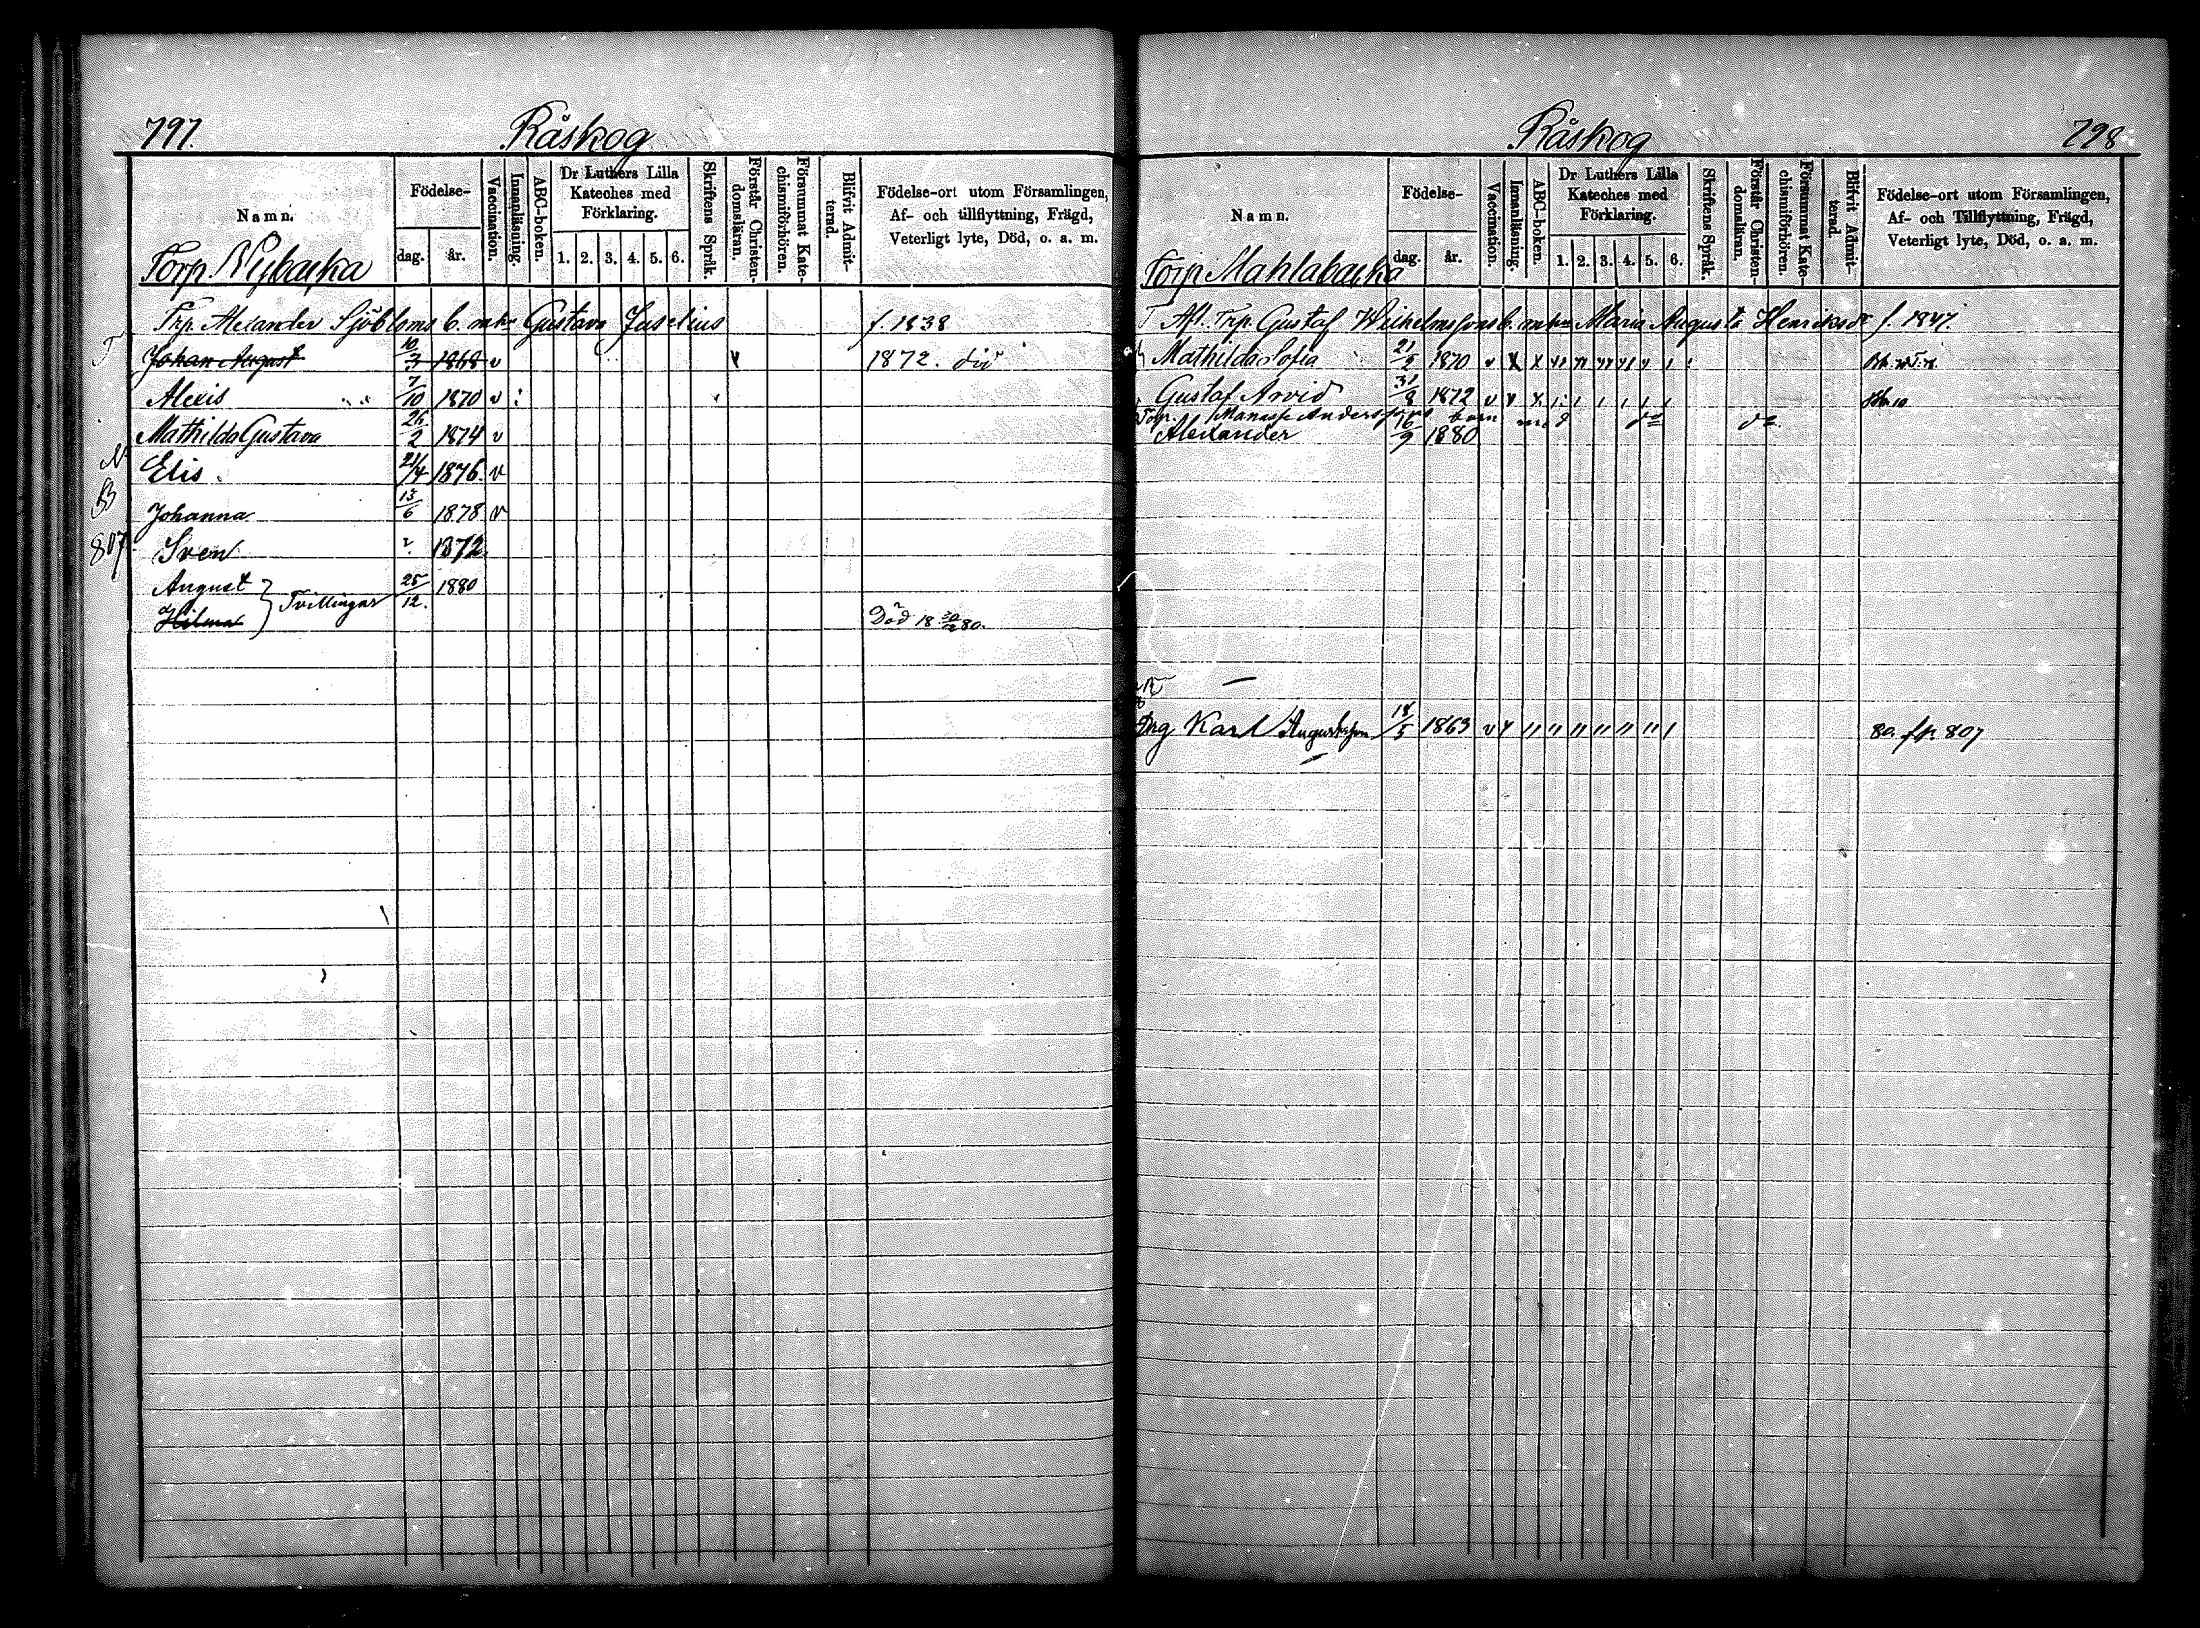 797.
Råskog
Namn.
Födelse-
dag.
år.
Vaccination.
Innanläsning.
ABC-boken.
Dr Luthers Lilla
Kateches med
Förklaring.
1. 2. 3. 4. 5. 6.
Skriftens Språk.
Förstår Christen-
domsläran.
Försummat Kate-
chismiförhören.
Blifvit Admit-
terad.
Födelse-ort utom Församlingen,
Af- och tillflyttning, Frägd,
Veterligt lyte, Död, o. a. m.
Torp Nybacka
Trp. Alexander Sjöbloms b. m. h. Gustava Juselius f. 1838
Johan August 10/7 1868 v 1872.
Alexis 7/10 1870 v
Mathilda Gustava 26/2 1874 v
Elis 21/4 1876 v
Johanna 13/6 1878 v
807
Sven 1872
August } Tvillingar 25/12. 1880
Hilma Död 18 80.
Råskog
798
Namn.
Födelse-
dag.
år.
Vaccination.
Innanläsning.
ABC-boken.
Dr Luthers Lilla
Kateches med
Förklaring.
1. 2. 3. 4. 5. 6.
Skriftens Språk.
Förstår Christen-
domsläran.
Försummat Kate-
chismiförhören.
Blifvit Admit-
terad.
Födelse-ort utom Församlingen,
Af- och Tillflyttning, Frägd,
Veterligt lyte, Död, o. a. m.
Torp Mahlabacka
Afl. Trp. Gustaf Wilhelmssons b. m. h. Maria Augusta Henriksdr f. 1847.
Mathilda Sofia 21/9 1870 v x x
Gustaf Arvid 31/8 1872 v v x
Torp. Manasse Anderssons barn med do do
Alexander 16/9 1880
Drg Karl Augustsson 18/5 1863 v x 80. fr. 807